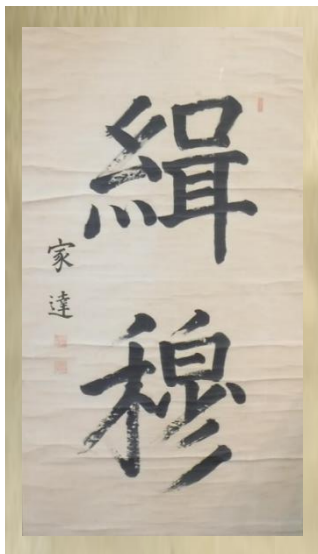 緝穆
家達